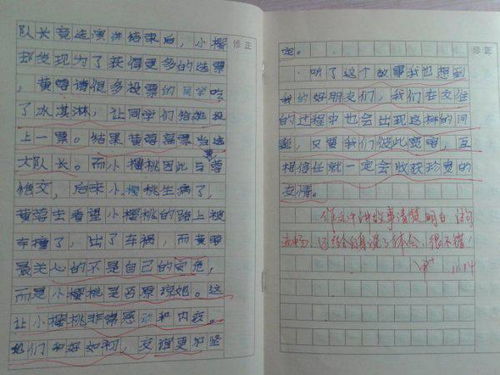 队长竞选演讲结束后，小樱
却发现为了获得更多的选票
，黄蓉请很多投票的同学吃
了冰淇淋，让同学们给她投
上一票。结果黄蓉高票当选
大队长。而小樱桃因此与黄蓉
绝交，后来小樱桃生病了，
黄蓉去看望小樱桃的路上被
车撞了，出了车祸，而黄蓉
最关心的不是自己的安危，
而是小樱桃是否原谅她。这
让小樱桃非常感动和内疚。
她们和好如初，友谊更加坚
修正
修正
听了这个故事我也想到
我的好朋友们，我们在交往
的过程中也会出现这样的问
题，只要我们彼此宽容，互
相信任就一定会收获珍贵的
友情。
作文中讲故事清楚明白
体会，很不错